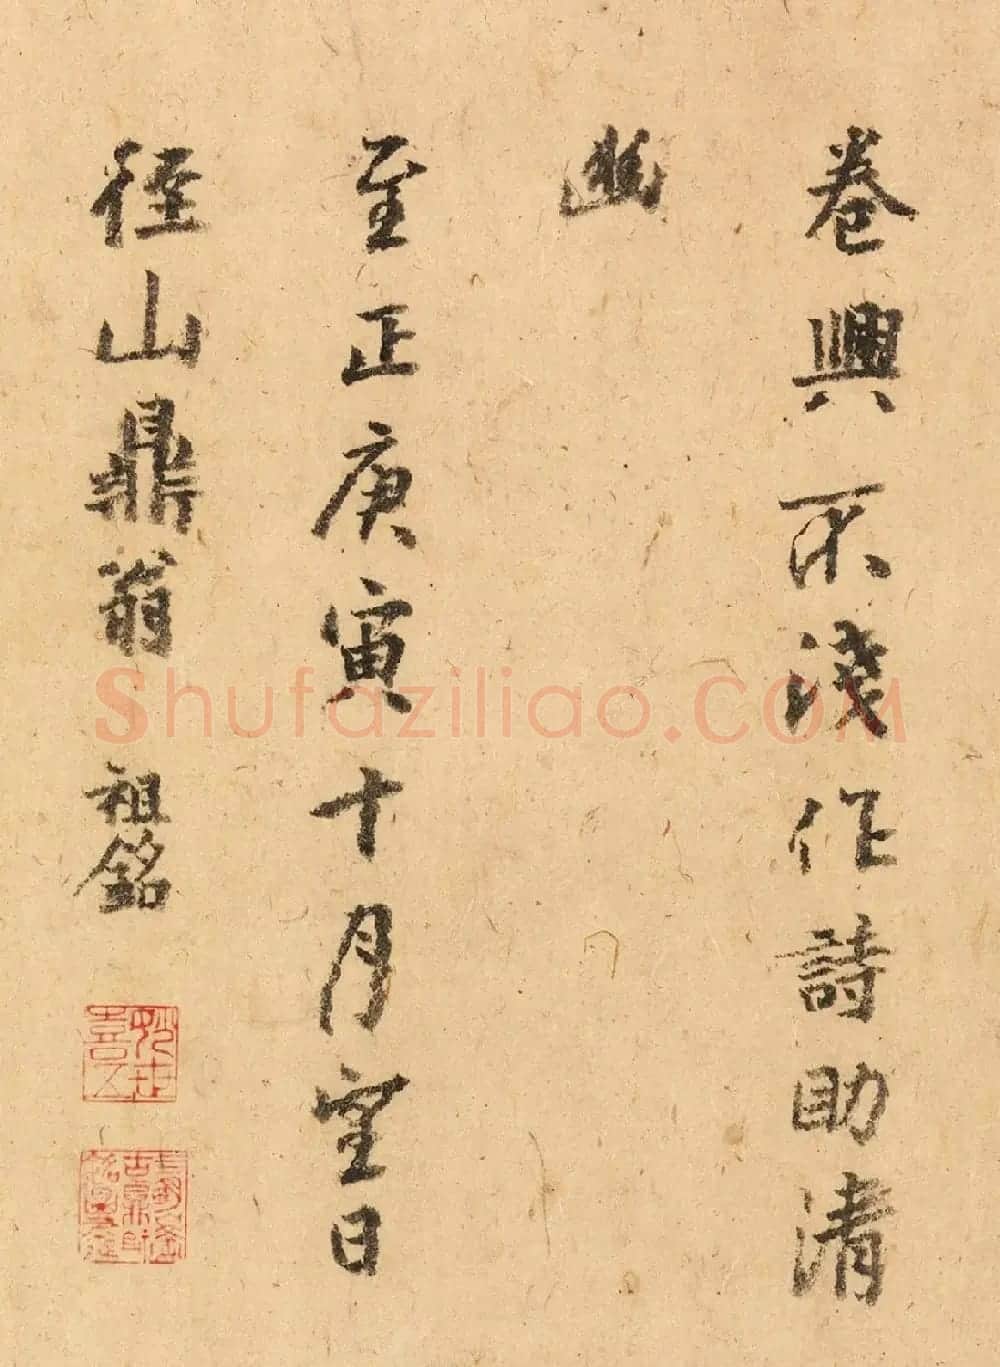 卷興不淺作詩助清
幽
至正庚寅十月望日
徑山鼎翁 祖銘
Shufaziliao.COM